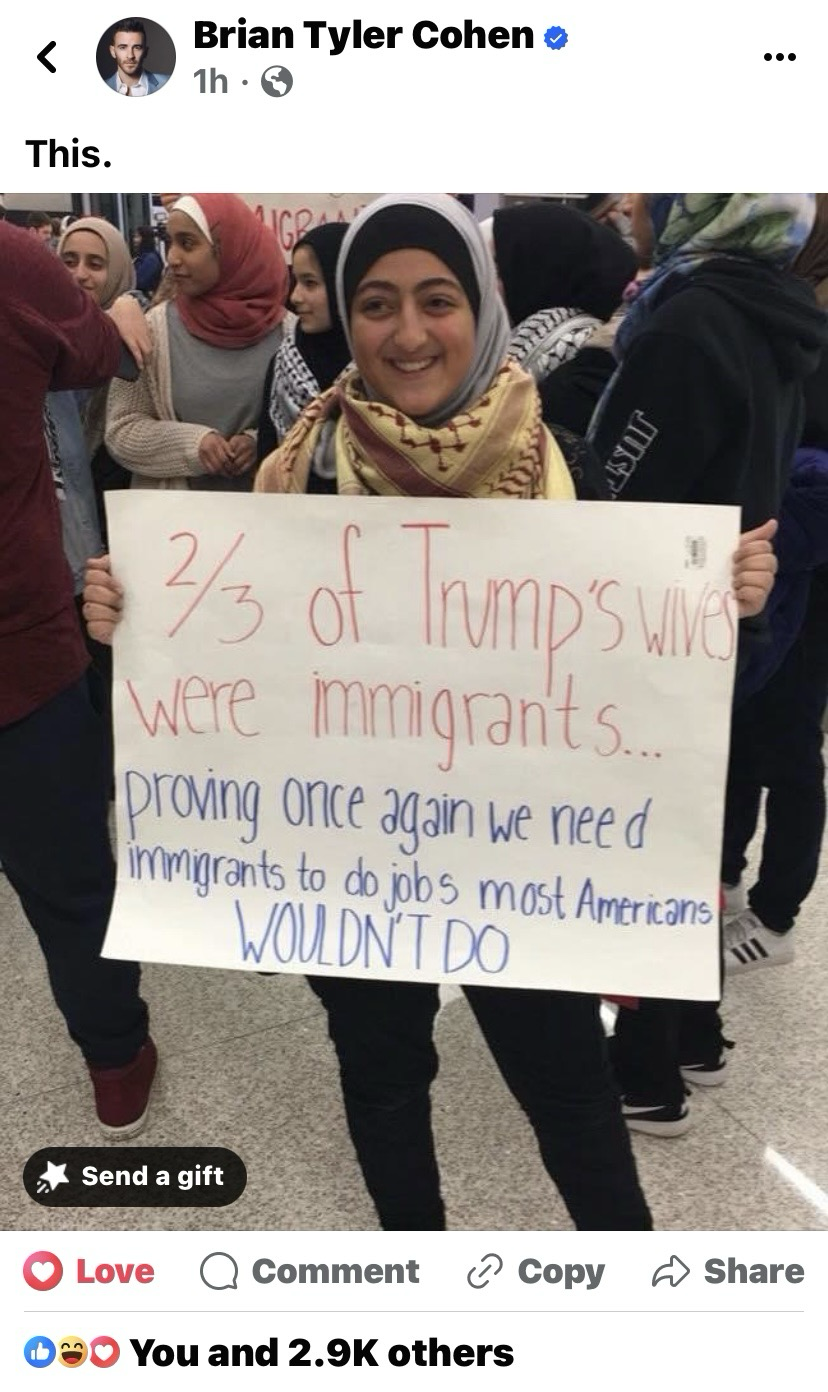 Brian Tyler Cohen
1h ·
This.
2/3 of Trump's wives
were immigrants...
proving once again we need
immigrants to do jobs most Americans
WOULDN'T DO
JUST
Send a gift
Love Comment Copy Share
You and 2.9K others